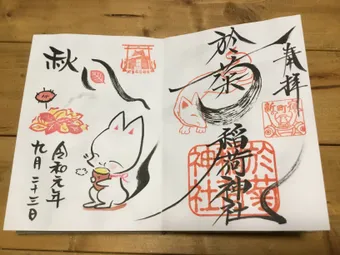 奉拝
新町宿
於菊
稲荷神社
於菊
神社
秋
令和元年
九月二十三日